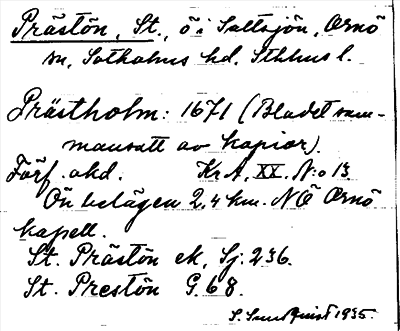 Prästön, St., ö i Saltsjön, Ornö
sn, Sotholms hd. Sthlms l.
Prästholm: 1671 (Bladet sam-
mansatt av kopior).
Förf. okd. KrA, XX. N:o 13
Ön belägen 2,4 km. NÖ Ornö
kapell.
St. Prästön ek, Sj. 236.
St. Prestön G. 68.
S. Sundquist 1935.